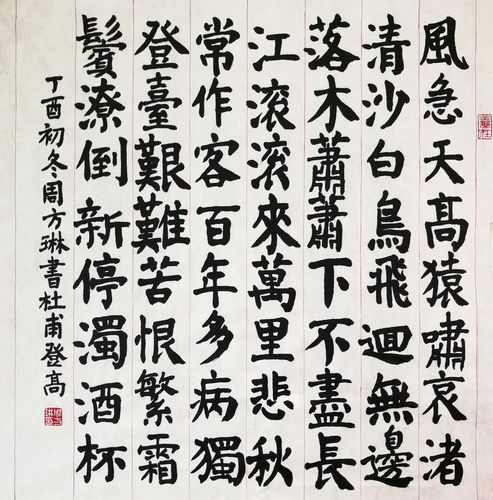 風急天高猿嘯哀渚
清沙白鳥飛迴無邊
落木蕭蕭下不盡長
江滾滾來萬里悲秋
常作客百年多病獨
登臺艱難苦恨繁霜
鬢潦倒新停濁酒杯
丁酉初冬周方琳書杜甫登高